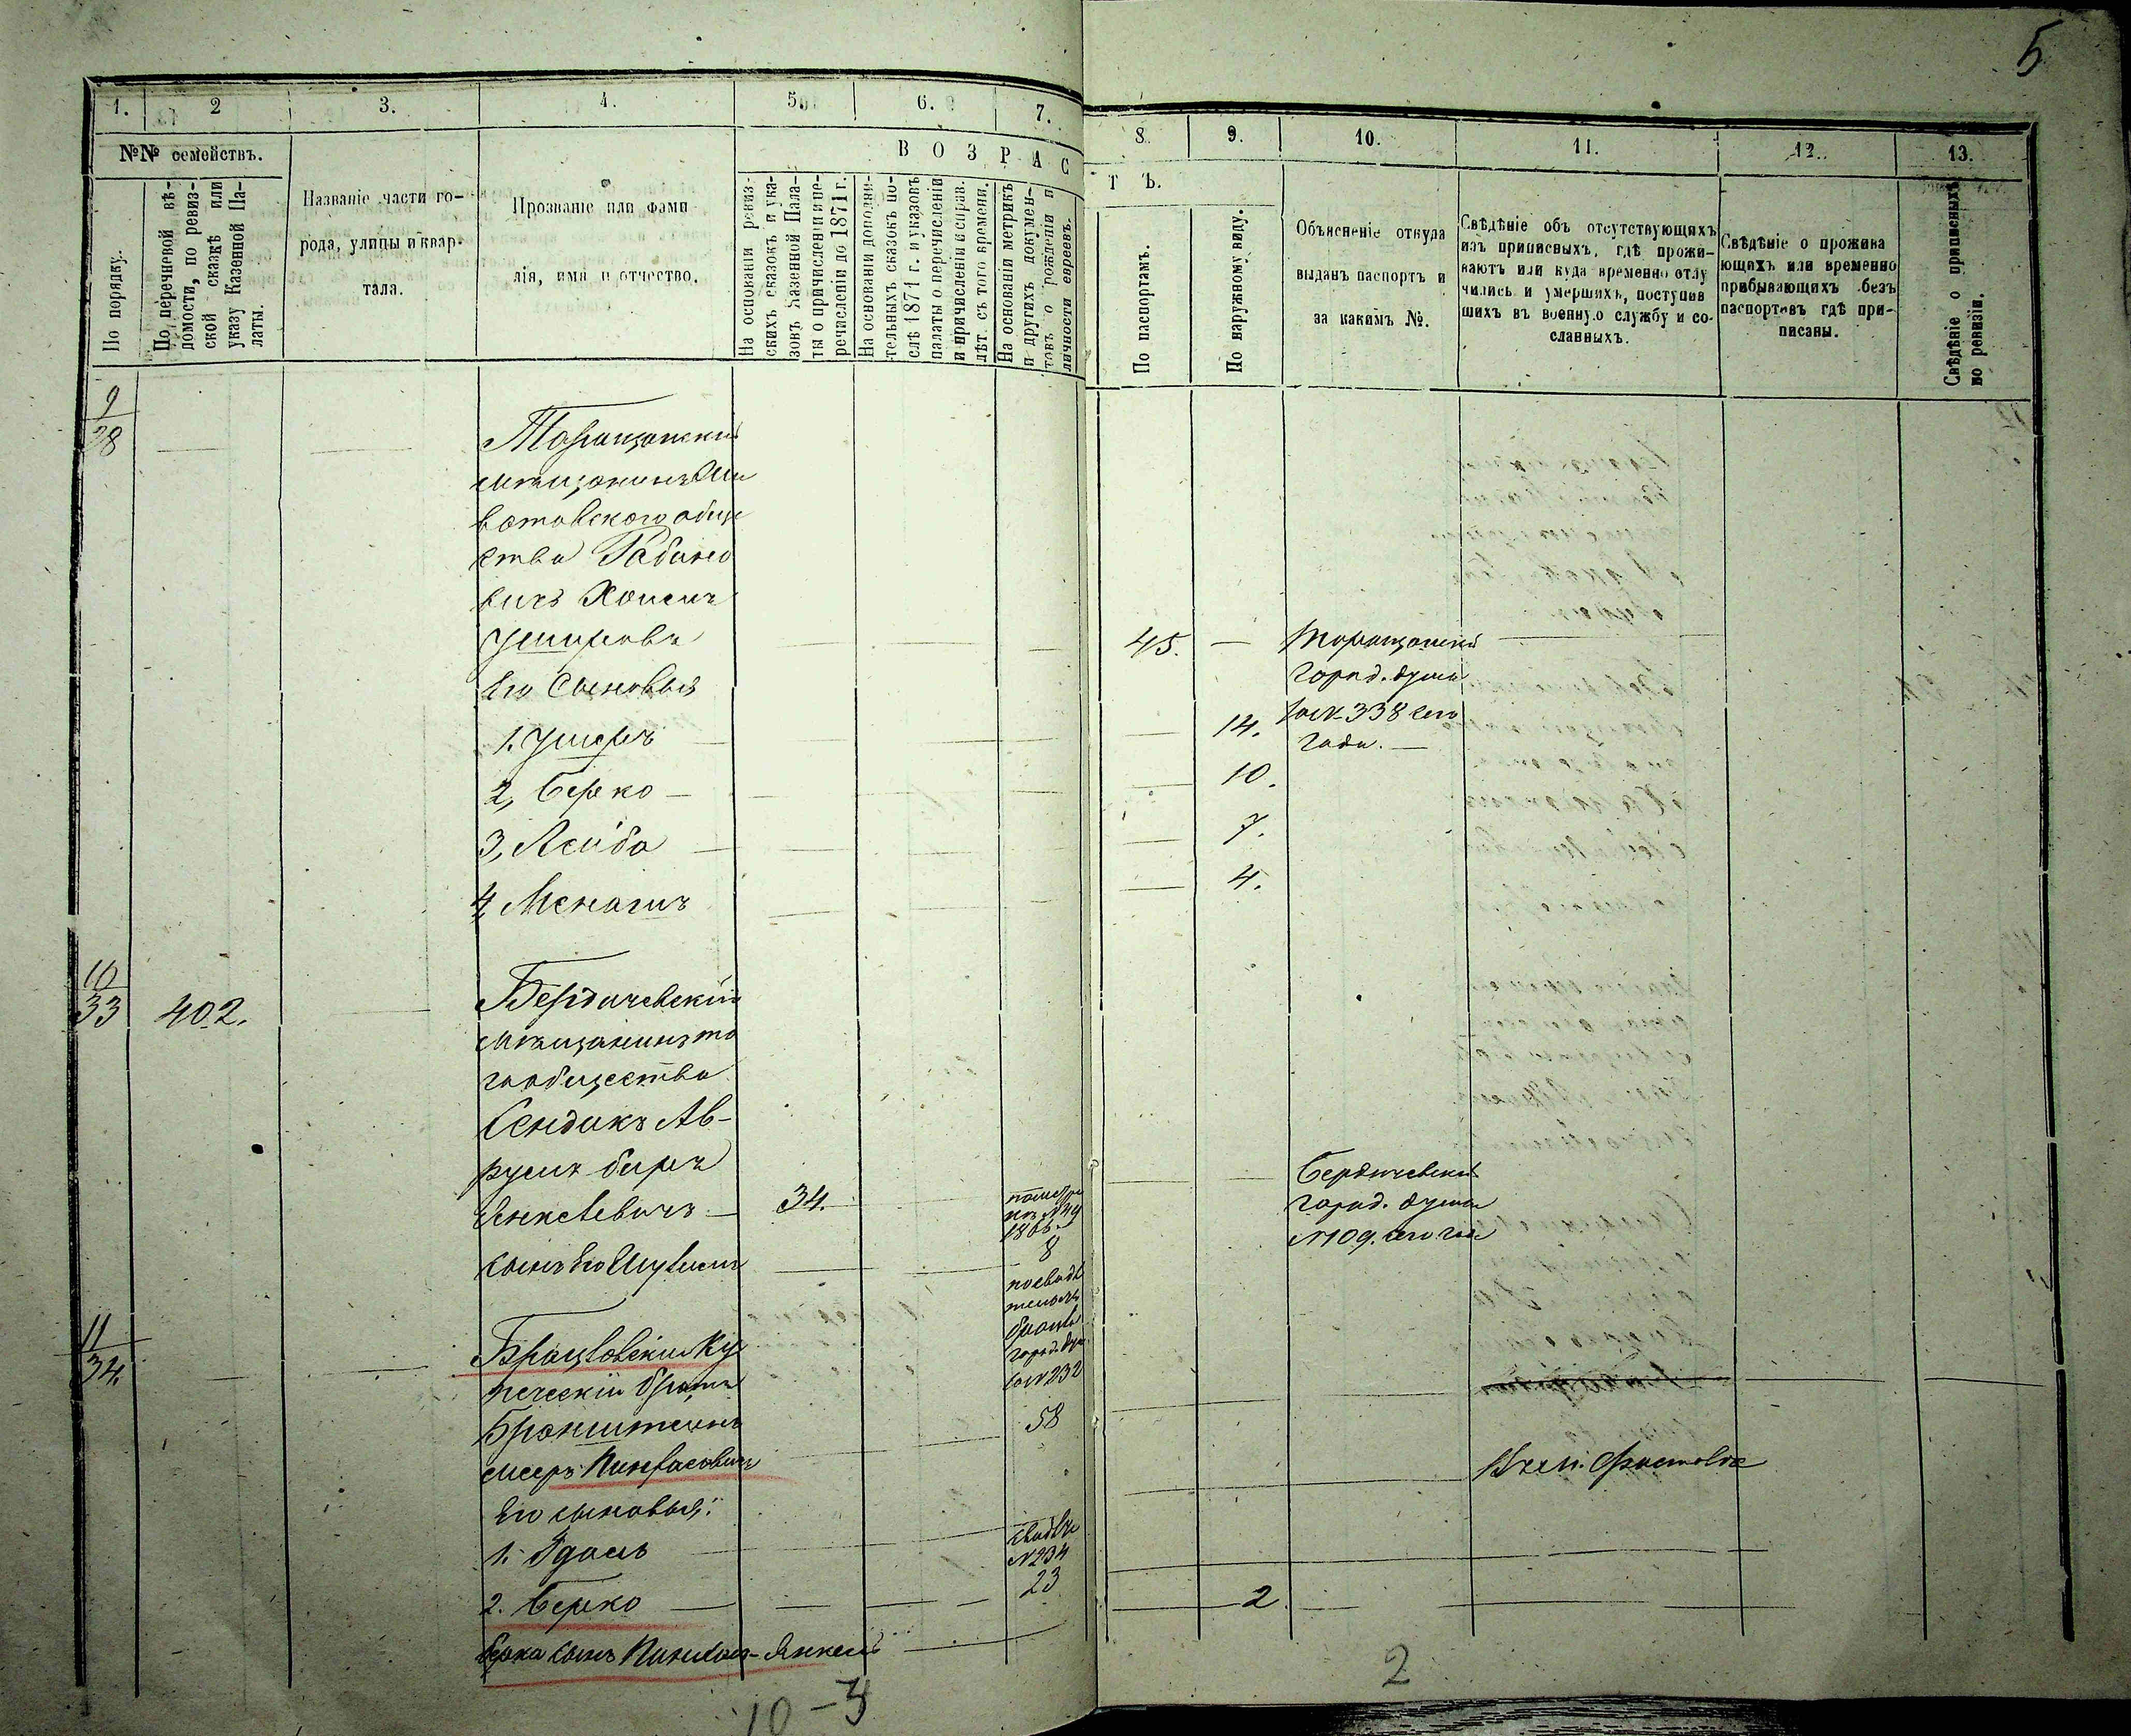 5
1. 2 3. 4. 5. 6. 7. 8. 9. 10. 11. 12. 13.
№№ семействъ.
По порядку.
По перечневой вѣ-
домости, по ревиз-
ской сказкѣ или
указу Казенной Па-
латы.
Названіе части го-
рода, улицы и квар-
тала.
Прозваніе или фами
лія, имя и отчество.
ВОЗРАСТЪ.
На основаніи ревиз-
скихъ сказокъ и ука-
зовъ Казенной Пала-
ты о причисленіи и пе-
речисленіи до 1871 г.
На основаніи дополни-
тельныхъ сказокъ по-
слѣ 1871 г. и указовъ
палаты о перечисленіи
и причисленіи и справ.
лѣт. съ того времени.
На основаніи метрикъ
и другихъ докумен-
товъ о рожденіи и
личности евреевъ.
По паспортамъ.
По наружному виду.
Объясненіе откуда
выданъ паспортъ и
за какимъ №.
Свѣдѣніе объ отсутствующихъ
изъ приписныхъ, гдѣ прожи-
ваютъ или куда временно отлу
чились и умершихъ, поступив
шихъ въ военную службу и со-
сланныхъ.
Свѣдѣніе о прожива
ющихъ или временно
прибывающихъ безъ
паспортовъ гдѣ при-
писаны.
Свѣдѣніе о приписныхъ
по ревизіи.
9
28
Таращанский
мѣщанинъ
вотовского обще
ства Рабино
вичъ Хаимъ
Ушеровъ 45. Таращанской
Его Сыновья город. дума
за № 338 сего
года.
1. Ушеръ 14.
2, Берко 10.
3, Лейба 7.
4, Менагимъ 4.
10
33 402. Бердичевскій
мѣщанинъ то
го общества
Сендикъ Ав-
румъ Беръ
Янкелевичъ 34.
1866.
8
Бердичевской
город. дума
№ 109. сего года
сынъ его
11
34. Брацлавский Ку
печескій братъ
Бронштейнъ
Пинхасовичъ
город. дум.
за № 232
58
Въ м. Фастовѣ
Его сыновья:
1. №234
23
2. Берко 2
Берка сынъ Пинхасъ-Янкель
10 - 3
2